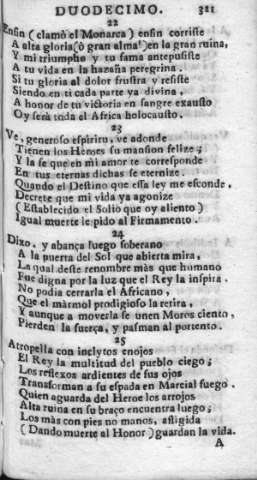 DUODECIMO. 321
22
Ensin (clamò el Monarca) ensin corriste
A alta gloria (ò gran alma!) en la gran ruina,
Y mi triumpho y tu fama antepusiste
A tu vida en la hazaña peregrina.
Si tu gloria al dolor frustra y resiste
Siendo en ti cada parte ya divina,
A honor de tu victoria en sangre exausto
Oy serà toda el Africa holocausto.
23
Ve, generoso espiritu, ve adonde
Tienen los Heroes su mansion felize;
Y la fe que en mi amor te corresponde
En tus eternas dichas se eternize.
Quando el Destino que essa ley me esconde,
Decrete que mi vida ya agonize
(Establecido el Solio que oy aliento)
Igual muerte le pido al Firmamento.
24
Dixo, y abança luego soberano
A la puerta del Sol que abierta mira,
La qual deste renombre màs que humano
Fue digna por la luz que el Rey la inspira.
No podia cerrarla el Africano,
Que el màrmol prodigioso la retira,
Y aunque a moverla se unen Moros ciento,
Pierden la fuerça, y pasman al portento.
25
Atropella con inclytos enojos
El Rey la multitud del pueblo ciego;
Los reflexos ardientes de sus ojos
Transforman a su espada en Marcial fuego.
Quien aguarda del Heroe los arrojos
Alta ruina en su braço encuentra luego;
Los màs con pies no manos, afligida
(Dando muerte al Honor) guardan la vida.
A